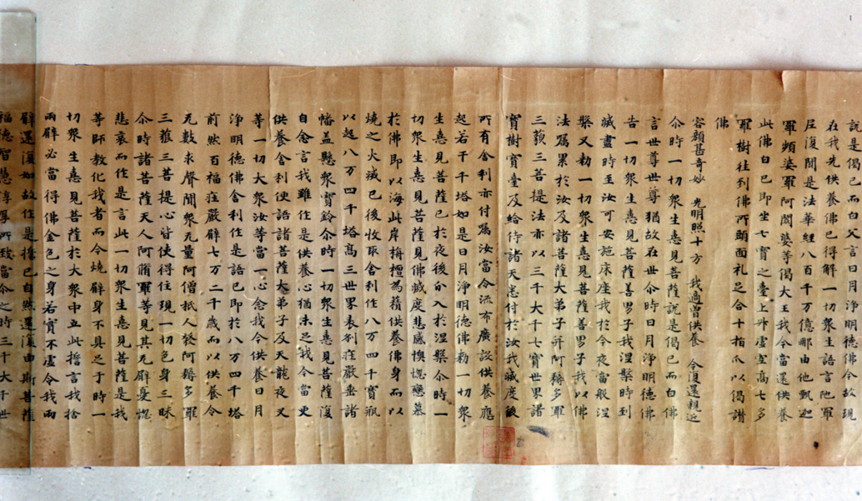 說是偈已而白父言日月淨明德佛今故現
在我先供養佛已得解一切眾生語言陀羅
尼復聞是法華經八百千万億那由他甄迦
羅頻婆羅阿閦婆等偈大王我今當還供養
此佛白已即坐七寶之臺上昇虛空高七多
羅樹往到佛所頭面礼足合十指爪以偈讚
佛
容顏甚奇妙 光明照十方 我適曾供養 今復還親近
尒時一切眾生憙見菩薩說是偈已而白佛
言世尊世尊猶故在世尒時日月淨明德佛
告一切眾生憙見菩薩善男子我涅槃時到
滅盡時至汝可安施床座我於今夜當般涅
槃又勑一切眾生憙見菩薩善男子我以佛
法囑累於汝及諸菩薩大弟子并阿耨多羅
三藐三菩提法亦以三千大千七寶世界諸
寶樹寶臺及給侍諸天悉付於汝我滅度後
所有舍利亦付囑汝當令流布廣設供養應
起若干千塔如是日月淨明德佛勑一切眾
生憙見菩薩已於夜後分入於涅槃尒時一
切眾生憙見菩薩見佛滅度悲感懊惱戀慕
於佛即以海此岸栴檀為𧂐供養佛身而以
燒之火滅已後收取舍利作八万四千寶瓶
以起八万四千塔高三世界表剎莊嚴垂諸
幡蓋懸眾寶鈴尒時一切眾生憙見菩薩復
自念言我雖作是供養心猶未足我今當更
供養舍利便語諸菩薩大弟子及天龍夜叉
等一切大眾汝等當一心念我今供養日月
淨明德佛舍利作是語已即於八万四千塔
前然百福莊嚴臂七万二千歲而以供養令
无數求聲聞眾无量阿僧祇人發阿耨多羅
三藐三菩提心皆使得住現一切色身三昧
尒時諸菩薩天人阿脩羅等見其无臂憂惱
悲哀而作是言此一切眾生憙見菩薩是我
等師教化我者而今燒臂身不具足于時一
切眾生憙見菩薩於大眾中立此誓言我捨
兩臂必當得佛金色之身若實不虛令我兩
臂還復如故作是誓已自然還復由斯菩薩
福德智慧淳厚所致當尒之時三千大千世